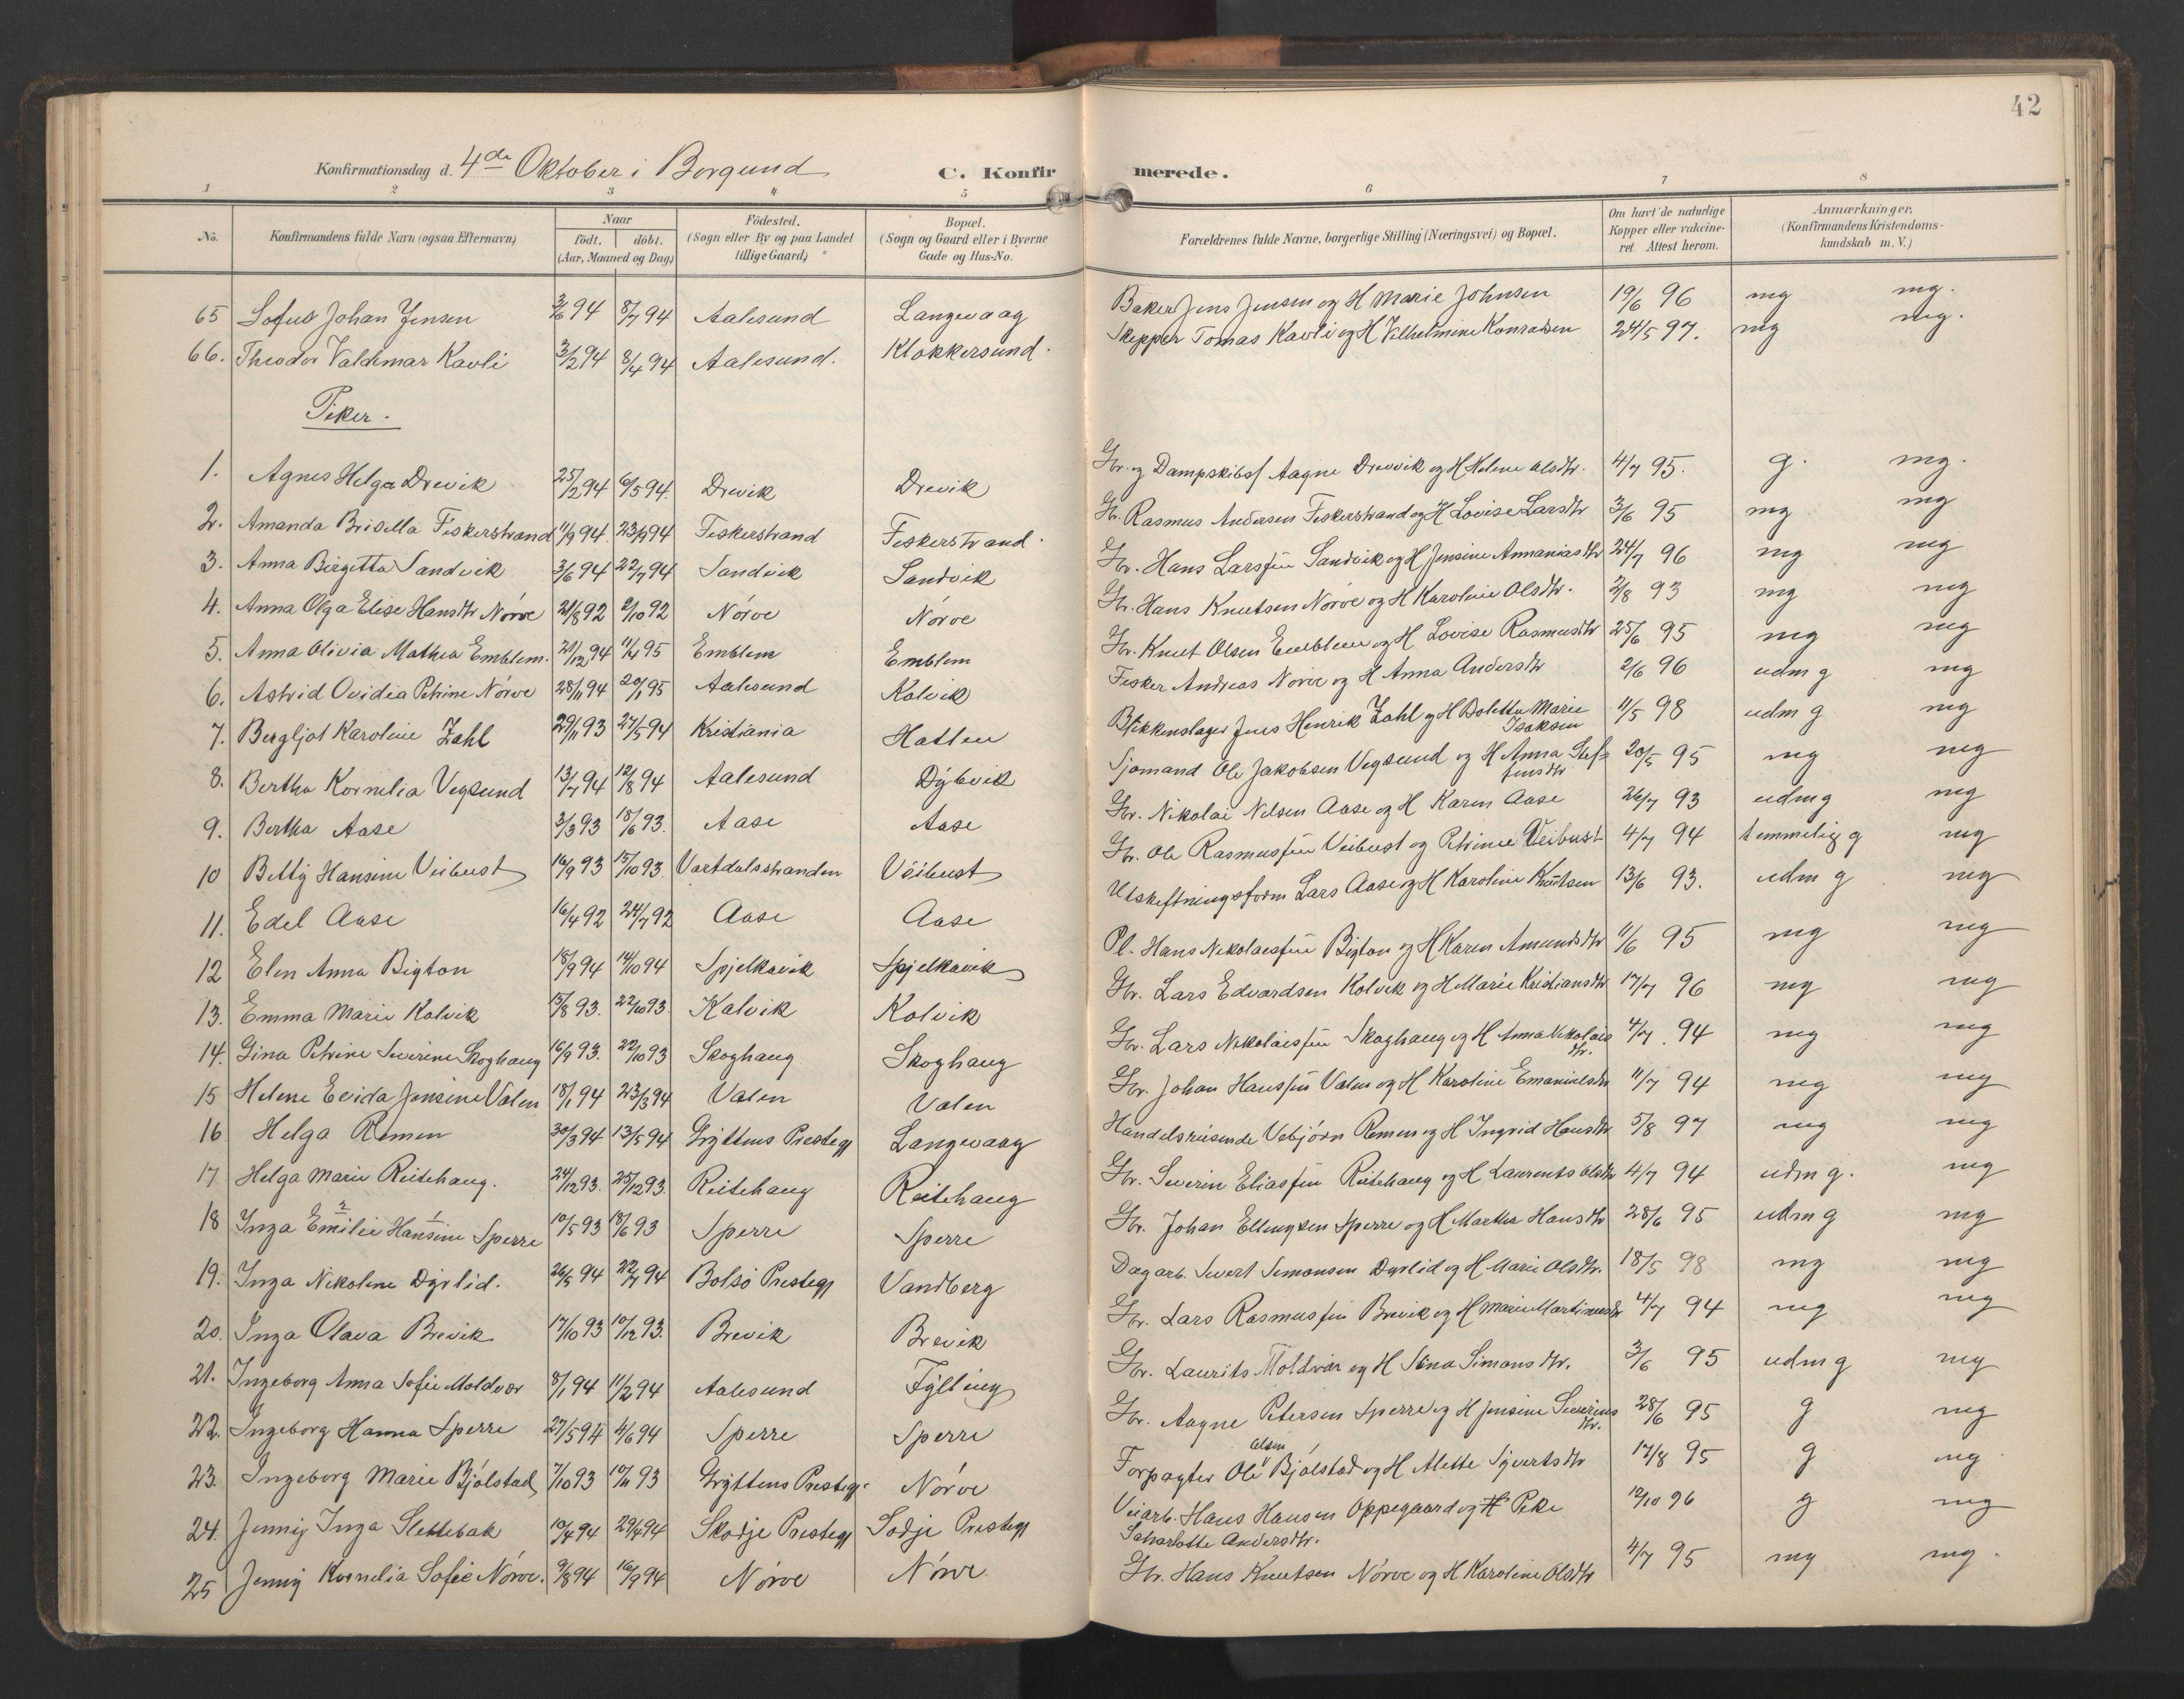 42
Konfirmationsdag d. 4de Oktober i Borgund C. Konfirmerede.
1 2 3 4 5 6 7 8
No. Konfirmandens fulde Navn (ogsaa Efternavn) Naar født. døbt. (Aar, Maaned og Dag) Fødested. (Sogn eller By og paa Landet tillige Gaard) Bopæl. (Sogn og Gaard eller i Byerne Gade og Hus-No. Forældrenes fulde Navne, borgerlige Stilling (Næringsvei) og Bopæl. Om havt de naturlige Kopper eller vakcineret. Attest herom. Anmærkninger. (Konfirmandens Kristendomskundskab m. V.)
65 Sofus Johan Jensen 3/6 94 8/7 94 Aalesund Langevaag Baker Jens Jensen og H Marie Johnsen 19/6 96 mg mg.
66. Theodor Valdemar Kavli 3/2 94 8/4 94 Aalesund. Klokkersund. Skipper Tomas Kavli og H Vilhelmine Konradsen 24/5 97. mg mg.
Piker.
1. Agnes Helga Drevik 25/2 94 6/5 94. Drevik Drevik Gbr. og Dampskibsf Aagne Drevvik og H Helene Olsdtr. 4/7 95. g. mg.
2. Amanda Brisella Fiskerstrand 11/9 94. 23/9 94 Fiskerstrand Fiskerstrand. Gbr. Rasmus Andersen Fiskerstrand og H Lovise Larsdtr 3/6 95 mg mg
3. Anna Birgitta Sandvik 3/6 94 22/7 94 Sandvik Sandvik Gbr. Hans Larsen Sandvik og H Jensine Annaniasdtr 24/7 96 mg mg
4. Anna Olga Elise Hansdtr Nørve 21/8 92 2/10 92 Nørve Nørve Gbr. Hans Knutsen Nørve og H Karoline Olsdtr. 2/8 93 mg mg
5. Anna Olivia Mathea Emblem. 21/12 94 11/4 95 Emblem Emblem Gbr. Knut Olsen Emblem og H Lovise Rasmusdtr 25/6 95 mg mg
6. Astrid Ovidia Petrine Nørve 28/11 94 20/1 95 Aalesund Kolvik Fisker Andreas Nørve og H Anna Andersdtr 2/6 96 udm g mg
7. Bergljot Karoline Zahl 29/11 93 27/5 94 Kristiania Hatlen Blikkenslager Jens Henrik Zahl og H Boletta Marie Isaksen 11/5 98 udm g mg
8. Bertha Kornelia Vegsund 13/7 94 12/8 94 Aalesund Dybvik Sjømand Ole Jakobsen Vegsund og H Anna Steffensdtr 20/5 95 mg mg
9. Bertha Aase 3/3 93 18/6 93. Aase Aase Gbr. Nikolai Nilsen Aase og H Karen Aase 26/7 93 udm g mg
10 Betty Hansine Veibust 16/9 93 15/10 93. Vartdalsstranden Veibust Gbr. Ole Rasmussen Veibust og Petrine Veibust 4/7 94 temmelig g mg
11. Edel Aase 16/4 92 24/7 92 Aase Aase Utskiftningsform Lars Aase og H Karoline Knutsen 13/6 93. udm g mg
12 Elen Anna Bigton 18/9 94 14/10 94 Spjelkavik Spjelkavik Pl. Hans Nikolaisen Bigton og H Karen Amundsdtr 11/6 95 mg mg
13. Emma Marie Kalvik 15/8 93. 22/10 93. Kalvik Kolvik Gbr. Lars Edvardsen Kolvik og H Marie Kristiansdtr 17/7 96 mg mg
14. Gina Petrine Severine Skoghaug 16/9 93. 22/10 93 Skoghaug Skoghaug Gbr. Lars Nikolaisen Skoghaug og H Anna Nikolaisdtr. 4/7. 94 mg mg
15 Helene Evida Jensine Valen 18/1 94 23/3 94 Valen Valen Gbr. Johan Hansen Valen og H Karoline Emanuelsdtr 11/7 94 mg mg
16 Helga Remen 30/3 94 13/5 94 Gryttens Prestegj Langevaag Handelsreisende Vebjørn Remen og H Ingrid Hansdtr 5/8 97 mg mg
17 Helga Marie Reitehaug. 24/12 93. 25/12 93. Reitehaug Reitehaug Gbr. Severin Eliassen Reitehaug og H Laurents Olsdtr 4/7 94 udm g. mg
18 Inga Emilie Hansine Sperre 10/5 93 18/6 93 Sperre Sperre Gbr. Johan Ellingsen Sperre og H Martha Hansdtr 28/6 95 udm g mg
19. Inga Nikoline Dyrlid. 26/5 94 22/7 94 Bolsø Prestegj Vandberg Dagarb. Sivert Simonsen Dyrlid og H Marie Olsdtr. 18/5 98 mg mg
20. Inga Olava Brevik 17/10 93 10/12 93. Brevik Brevik Gbr. Lars Rasmussen Brevik og H Marie Martinusdtr 4/7 94 mg mg
21. Ingeborg Anna Sofie Moldvær 8/1 94 11/2 94 Aalesund Fylling Gbr. Laurits Moldvær og H Stina Simonsdtr. 3/6 95 udm g mg
22. Ingeborg Hanna Sperre 27/5 94 4/6 94 Sperre Sperre Gbr. Aagne Petersen Sperre og H Jensine Severinsdtr. 28/6 95 g mg
23. Ingeborg Marie Bjølstad 7/10 93 10/11 93 Gryttens Prestegj. Nørve Forpagter Ole Olsen Bjølstad og H Alette Syvertsdtr 17/8 95 g mg
24. Jenny Inga Slettebak 10/4 94 29/4 94 Skodje Prestegj Sodje Prestegj Veiarb. Hans Hansen Oppegaard og H Pike Scharlotte Andersdtr. 12/10 96 g mg
25 Jenny Kornelia Sofie Nørve. 9/8 94 16/9 94 Nørve Nørve. Gbr. Hans Knutsen Nørve og H Karoline Olsdtr 4/7 95 mg mg.